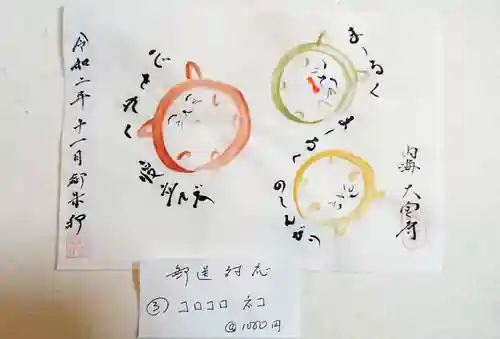 内海 大宝寺
まーるく
まーるく
のーんびり
心まるく
令和二年十一月御朱押
郵送対応
③コロコロ ネコ
@1000円